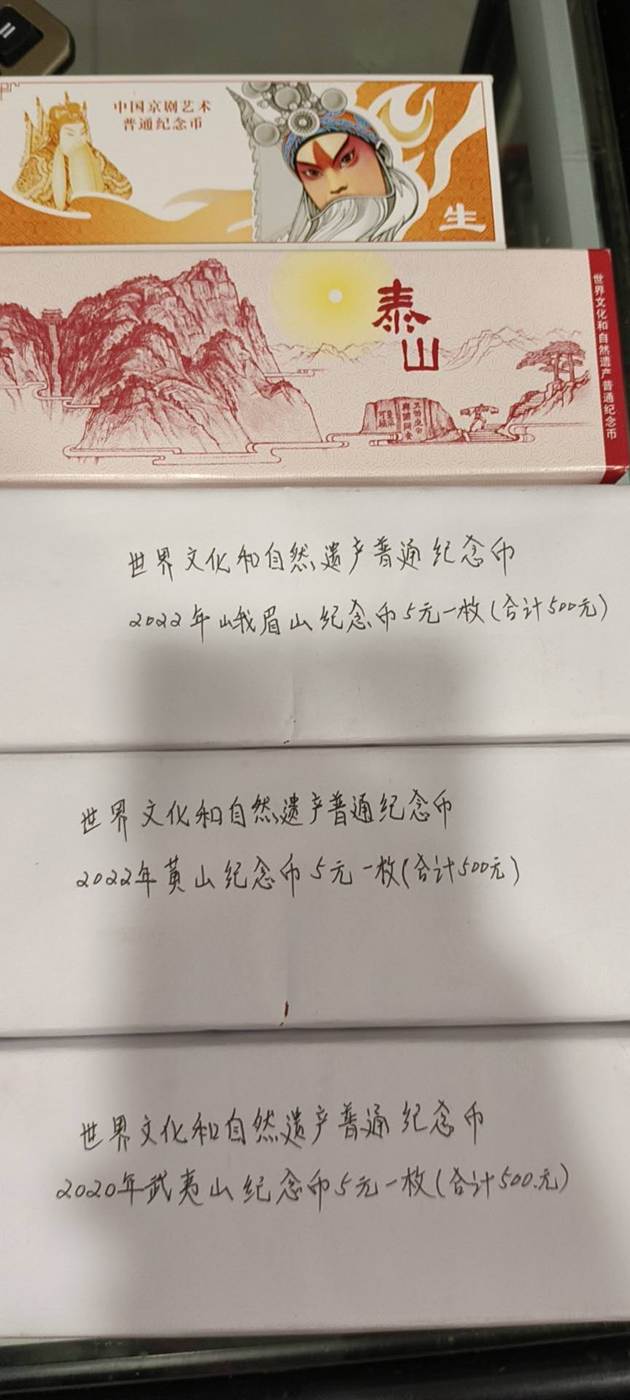 中国京剧艺术
普通纪念币
生
泰山
世界文化和自然遗产普通纪念币
世界文化和自然遗产普通纪念币
2022年峨眉山纪念币5元一枚(合计500元)
世界文化和自然遗产普通纪念币
2022年黄山纪念币5元一枚(合计500元)
世界文化和自然遗产普通纪念币
2020年武夷山纪念币5元一枚(合计500元)